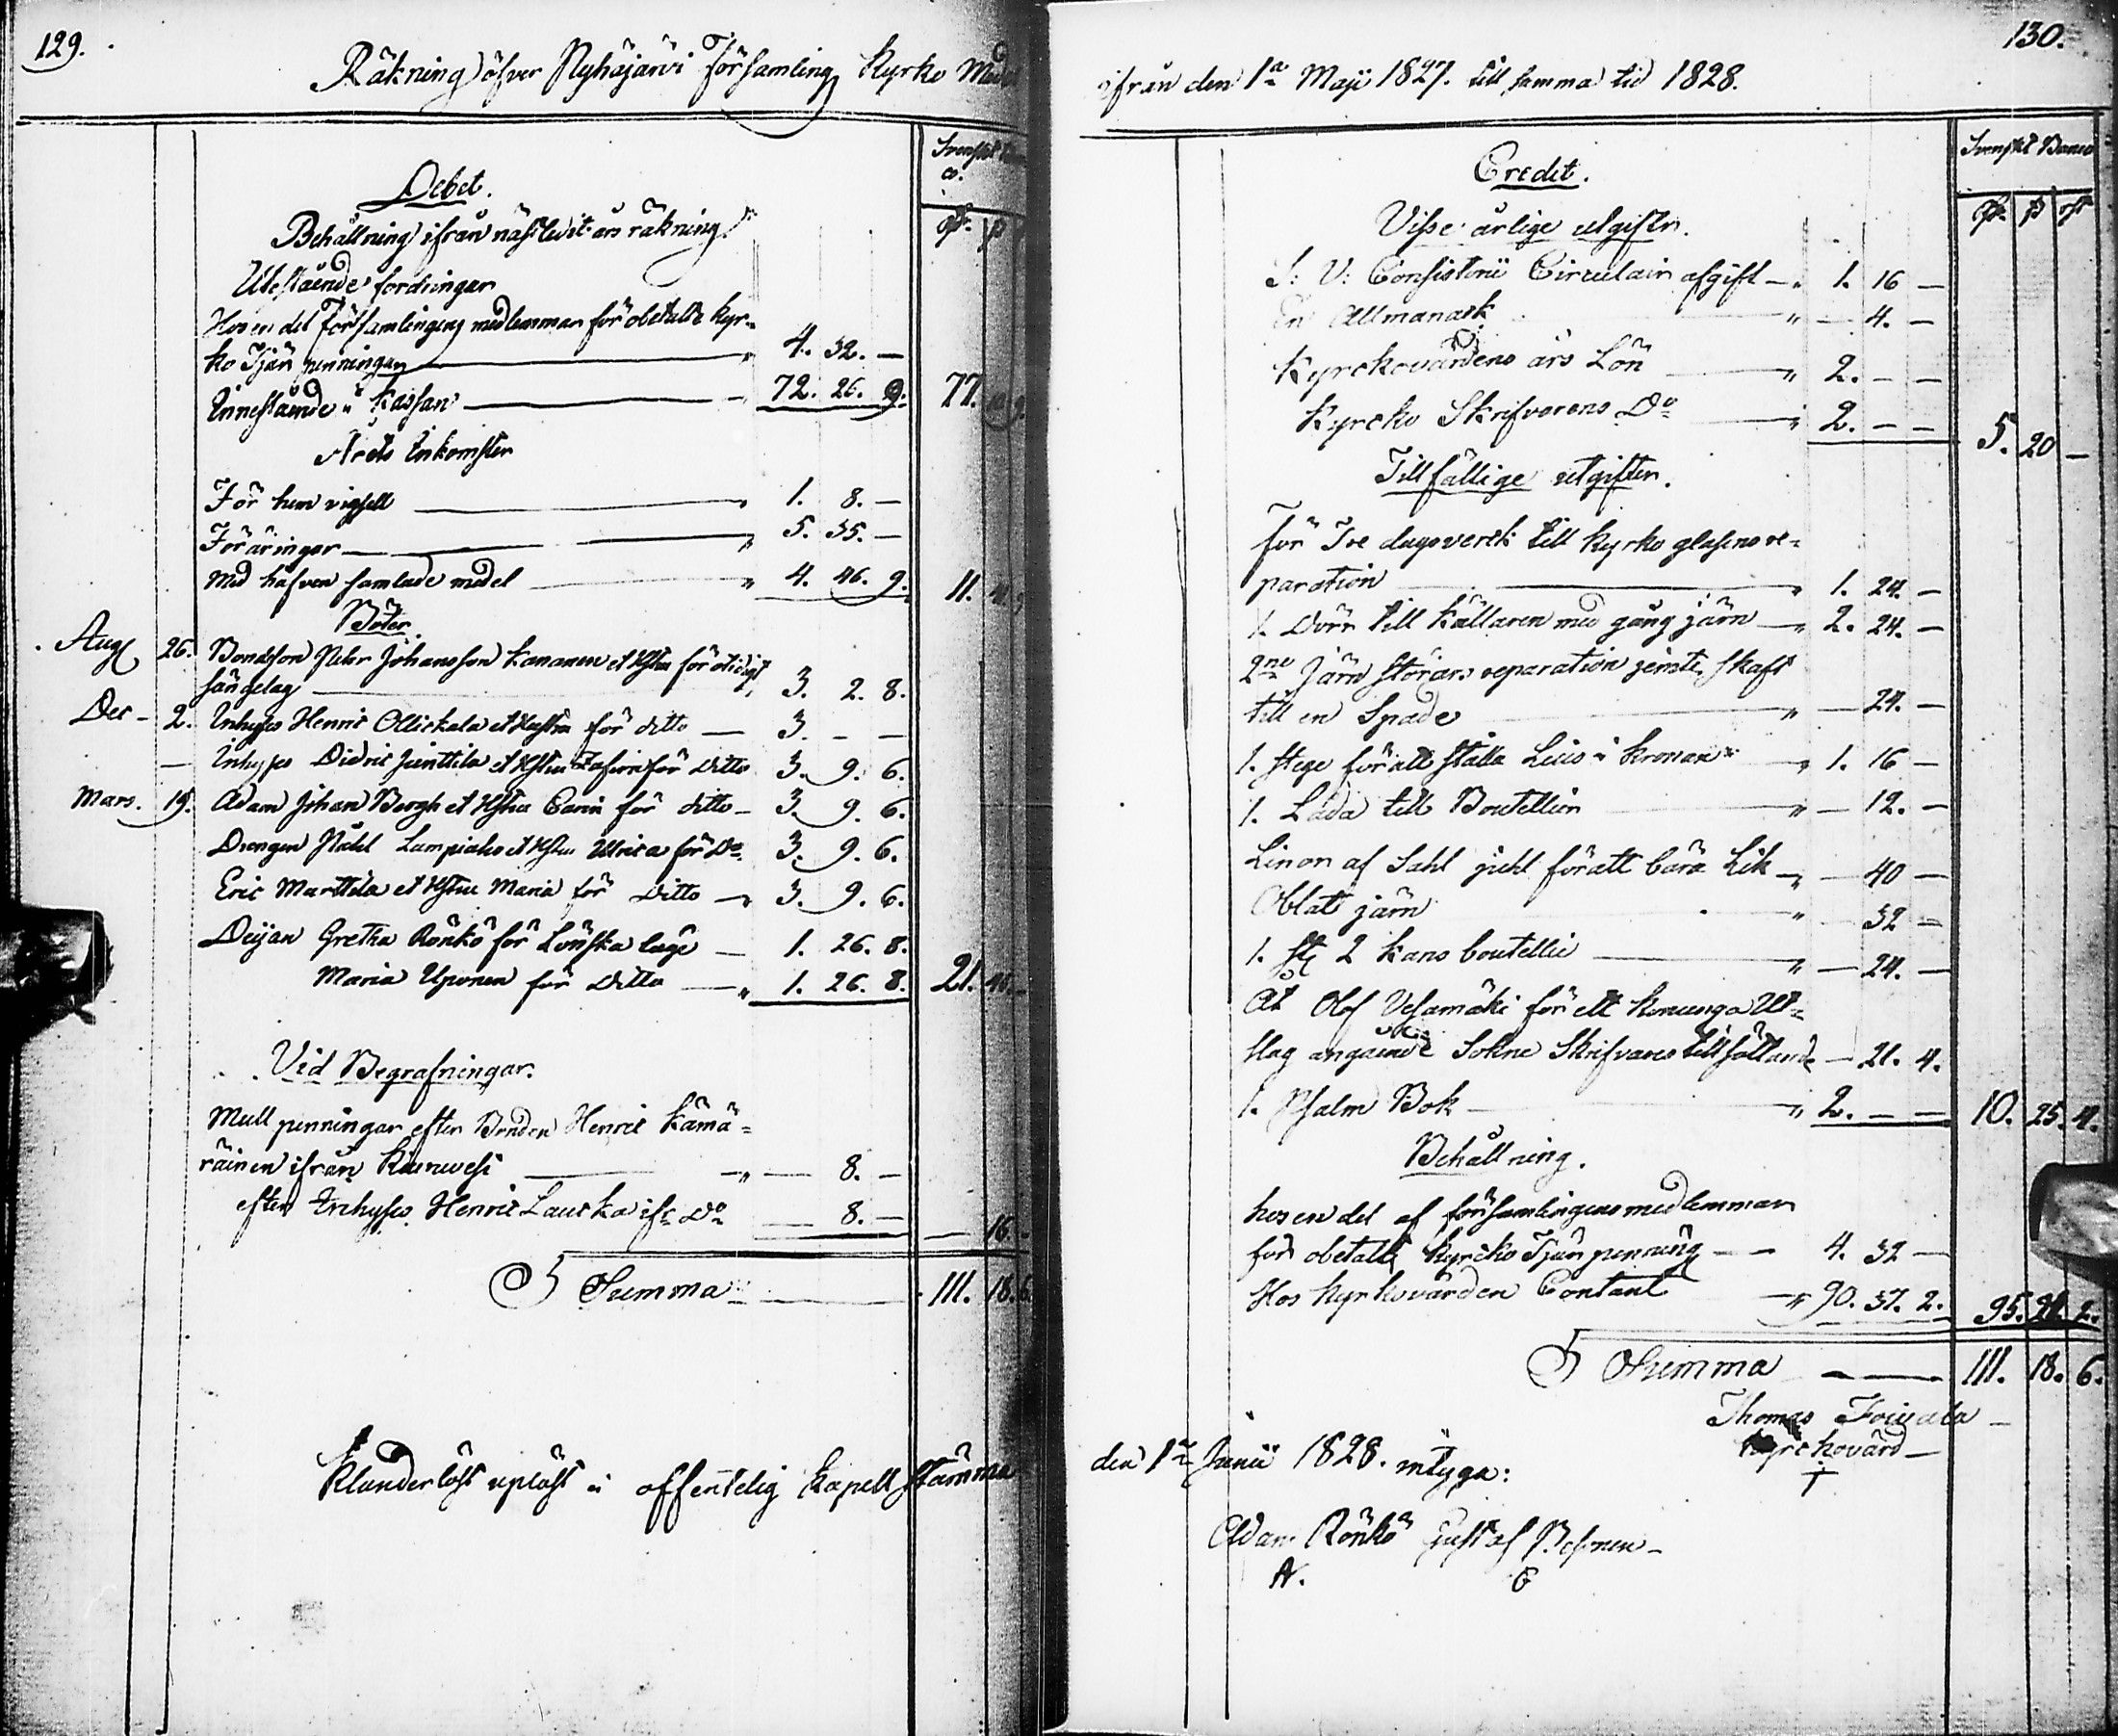 129.
Räkning öfver Pyhäjärvi Församlings Kyrko Med
Svenskt
co.
Debet.
Behållning ifrån näst ledit års räkning.
Utestående fordringar
Hos en del Församlingens medlemmar för obetalte Kyr=
ko Tjän penningar 4. 32. —
Innestånde i Kassan 72. 26. 9. 77.
Årets Inkomster
För hem vigsell 1. 8. —
Föräringar 5. 35. —
Med håfven samlade medel 4. 46. 9. 11.
Böter.
Aug 26. Bondeson Petter Johansson Kananen et Hstru för otidigt
sängelag 3. 2. 8.
Dec — 2. Inhyses Henric Ollickala et Hustru för ditto — 3. — —
— Inhyses Didric Junttila et Hstru för Ditto 3. 9. 6.
Mars. 19. Adam Johan Bergh et Hstru Carin för ditto — 3. 9. 6.
Drengen Påhl Lampiaho et Hstru Ulrica för Do 3. 9. 6.
Eric Marttila et Hstru Maria för Ditto — 3. 9. 6.
Deijan Gretha Rönkö för Lönska läge — 1. 26. 8.
Maria Uponen för Ditto — 1. 26. 8. 21. 46. —
Vid Begrafningar.
Mull penningar efter Bonden Henric Kämä=
räinen ifrån — 8. —
efter Inhyses Henric Laucka ifr Do — 8. — — 16. —
Summa 111. 18. 6.
Klanderlöst upläst i offentelig Kapell stämma
130.
ifrån den 1a Maji 1827. till samma tid 1828.
Svenskt Banco
Credit.
Visse årlige utgifter.
S: V: Consistorii Circulair afgift — 1. 16 —
En Allmanack — 4. —
Kyrckovärdens års Lön 2. — —
Kyrcko Skrifvarens Do 2. — — 5. 20 —
Tillfällige utgifter.
för Tre dagsverck till Kyrko glasens re=
paration 1. 24. —
1. Dörr till Källaren med gång järn — 2. 24. —
2ne Järn störars reparation jemte skaft
till en Spade — 24. —
1. stege för att ställa Lius i Kronan 1. 16 —
1. Låda till Boutellier — 12. —
Linor af Sahl juhl för att bära Lik — 40 —
Oblat järn 32 —
1. st 2 Kans boutellie — 24. —
At Olof Vesamäki för ett Konunga Ut=
slag angående Sokne Skrifvares tillsättande — 21. 4.
1. Psalm Bok 2. — — 10. 25. 4.
Behållning.
hos en del af församlingens medlemmar
för obetalt Kyrcko Tjän penning — — 4. 32 —
Hos Kyrkovärden Contant 90. 37. 2. 95. 21. 2.
Summa 111. 18. 6.
Thomas
Kyrckovärd —
den 1a Junii 1828. intyga:
Adam Rönkö Gustaf